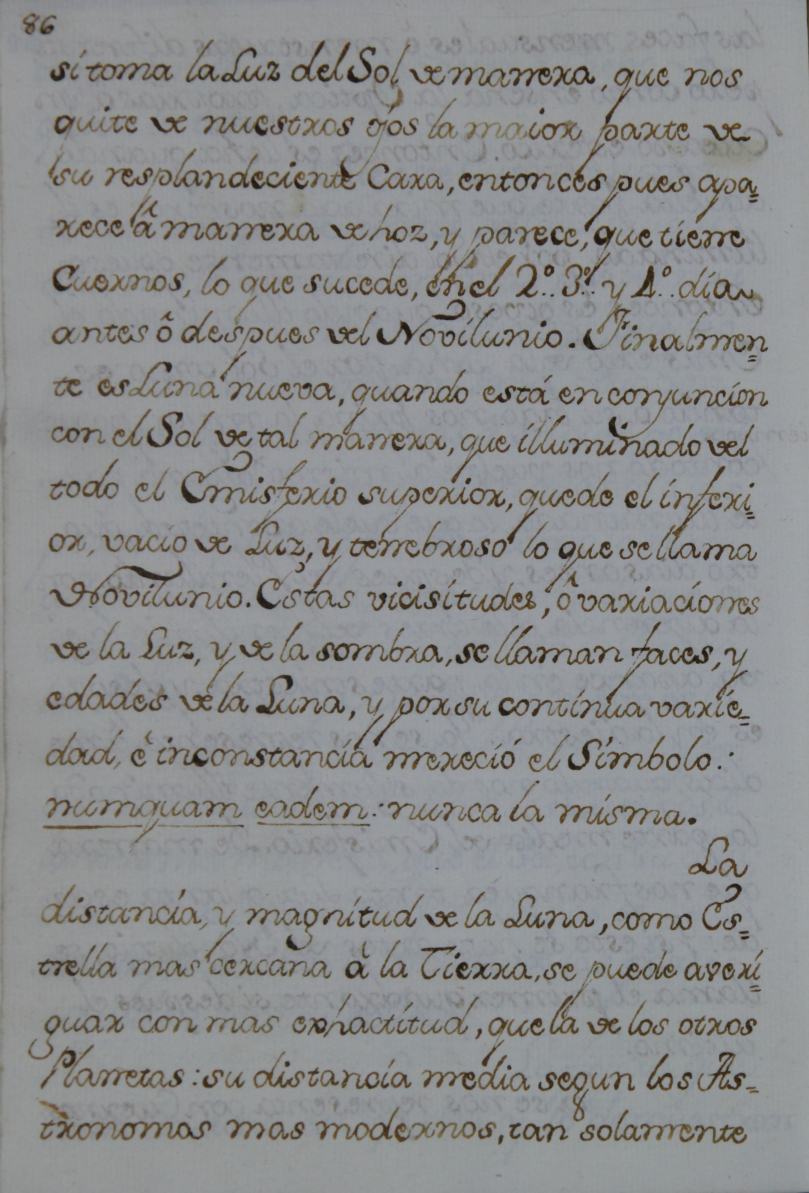 86
si toma la Luz del Sol de manera, que nos
quite de nuestros ojos la maior parte de
su resplandeciente Cara, entonces pues apa=
rece â manera de hoz, y parece, que tiene
Cuernos, lo que sucede, en el 2.º 3.º y 4.º día
antes ô despues del Novilunio. Finalmen=
te es Luna nueva, quando está en conjuncion
con el Sol de tal manera, que illuminado del
todo el Emisferio superior, quede el inferi=
or, vacio de Luz, y tenebroso lo que se llama
Novilunio. Estas vicisitudes, ô variaciones
de la Luz, y de la sombra, se llaman faces, y
edades de la Luna, y por su continua varie=
dad, ê inconstancia mereció el Símbolo:
numquam eadem: nunca la misma.
La
distancia, y magnitud de la Luna, como Es=
trella mas cercana â la Tierra, se puede averi=
guar con mas exhactitud, que la de los otros
Planetas: su distancia media segun los As=
tronomos mas modernos, tan solamente